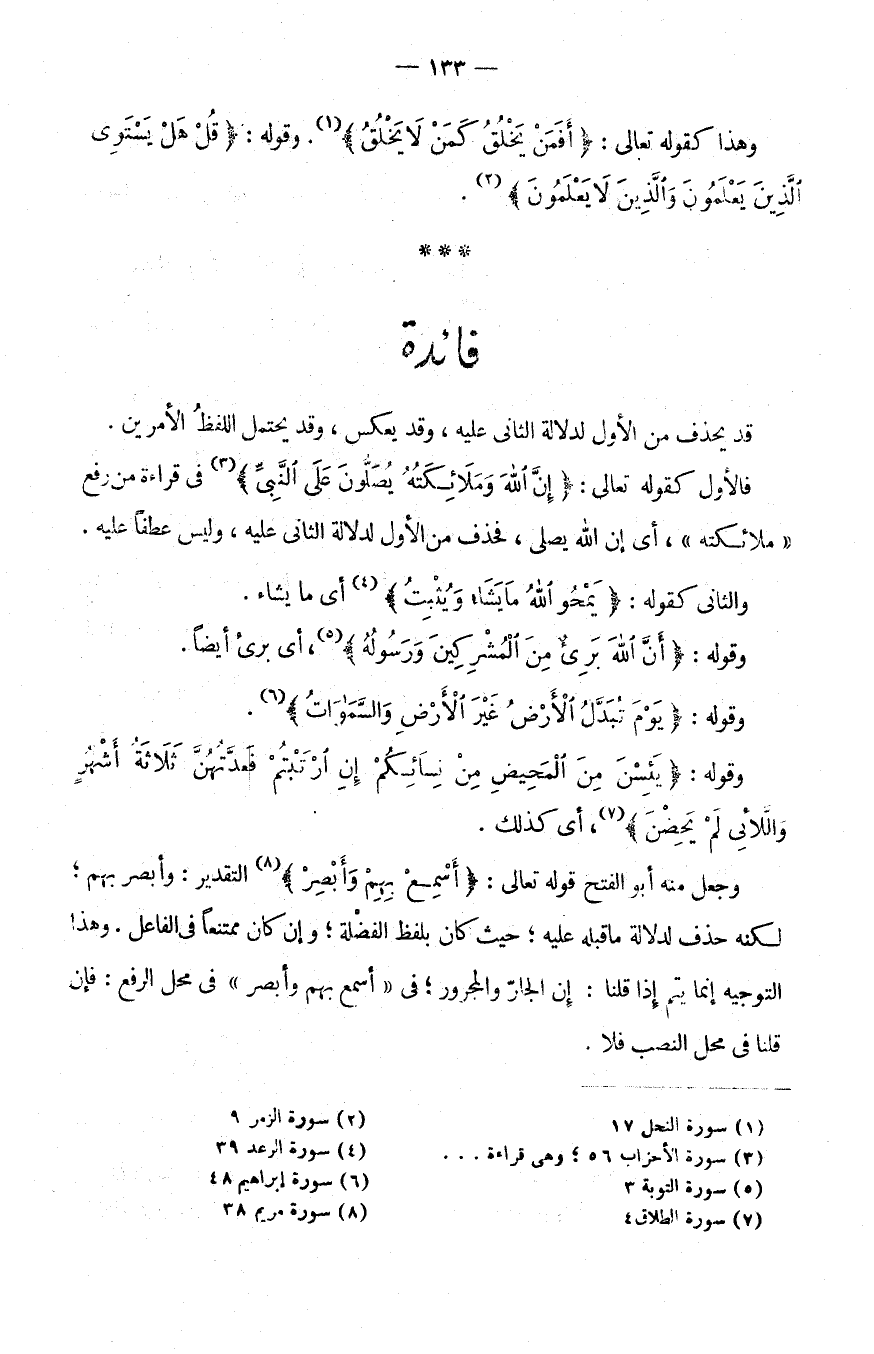 — ١٣٣ —
وهذا كقوله تعالى : ﴿ أَفَمَنْ يَخْلُقُ كَمَنْ لَا يَخْلُقُ ﴾(١). وقوله : ﴿ قُلْ هَلْ يَسْتَوِى
ٱلَّذِينَ يَعْلَمُونَ وَٱلَّذِينَ لَا يَعْلَمُونَ ﴾(٢) .
***
فائدة
قد يحذف من الأول لدلالة الثانى عليه ، وقد يعكس ، وقد يحتمل اللفظُ الأمرين .
فالأول كقوله تعالى : ﴿ إِنَّ ٱللهَ وَمَلَائِكَتُهُ يُصَلُّونَ عَلَى ٱلنَّبِىِّ ﴾(٣) فى قراءة من رفع
« ملائكته » ، أى إن الله يصلى ، فحذف من الأول لدلالة الثانى عليه ، وليس عطفاً عليه .
والثانى كقوله : ﴿ يَمْحُو ٱللهُ مَا يَشَاءُ وَيُثْبِتُ ﴾(٤) أى ما يشاء .
وقوله : ﴿ أَنَّ ٱللهَ بَرِىٌ مِنَ ٱلْمُشْرِكِينَ وَرَسُولُهُ ﴾(٥)، أى برئ أيضاً .
وقوله : ﴿ يَوْمَ تُبَدَّلُ ٱلْأَرْضُ غَيْرَ ٱلْأَرْضِ وَالسَّمٰوَاتُ ﴾(٦) .
وقوله : ﴿ يَئِسْنَ مِنَ ٱلْمَحِيضِ مِنْ نِسَائِكُمْ إِنِ ٱرْتَبْتُمْ فَعِدَّتُهُنَّ ثَلَاثَةُ أَشْهُرٍ
وَاللَّائِى لَمْ يَحِضْنَ ﴾(٧)، أى كذلك .
وجعل منه أبو الفتح قوله تعالى : ﴿ أَسْمِعْ بِهِمْ وَأَبْصِرْ ﴾(٨) التقدير : وأبصر بهم ؛
لكنه حذف لدلالة ماقبله عليه ؛ حيث كان بلفظ الفضْلة ؛ وإن كان ممتنعاً فى الفاعل . وهذا
التوجيه إنما يتم إذا قلنا : إن الجارّ والمجرور ؛ فى « أسمع بهم وأبصر » فى محل الرفع : فإن
قلنا فى محل النصب فلا .
(١) سورة النحل ١٧
(٢) سورة الزمر ٩
(٣) سورة الأحزاب ٥٦ ؛ وهى قراءة . . .
(٤) سورة الرعد ٣٩
(٥) سورة التوبة ٣
(٦) سورة إبراهيم ٤٨
(٧) سورة الطلاق ٤
(٨) سورة مريم ٣٨